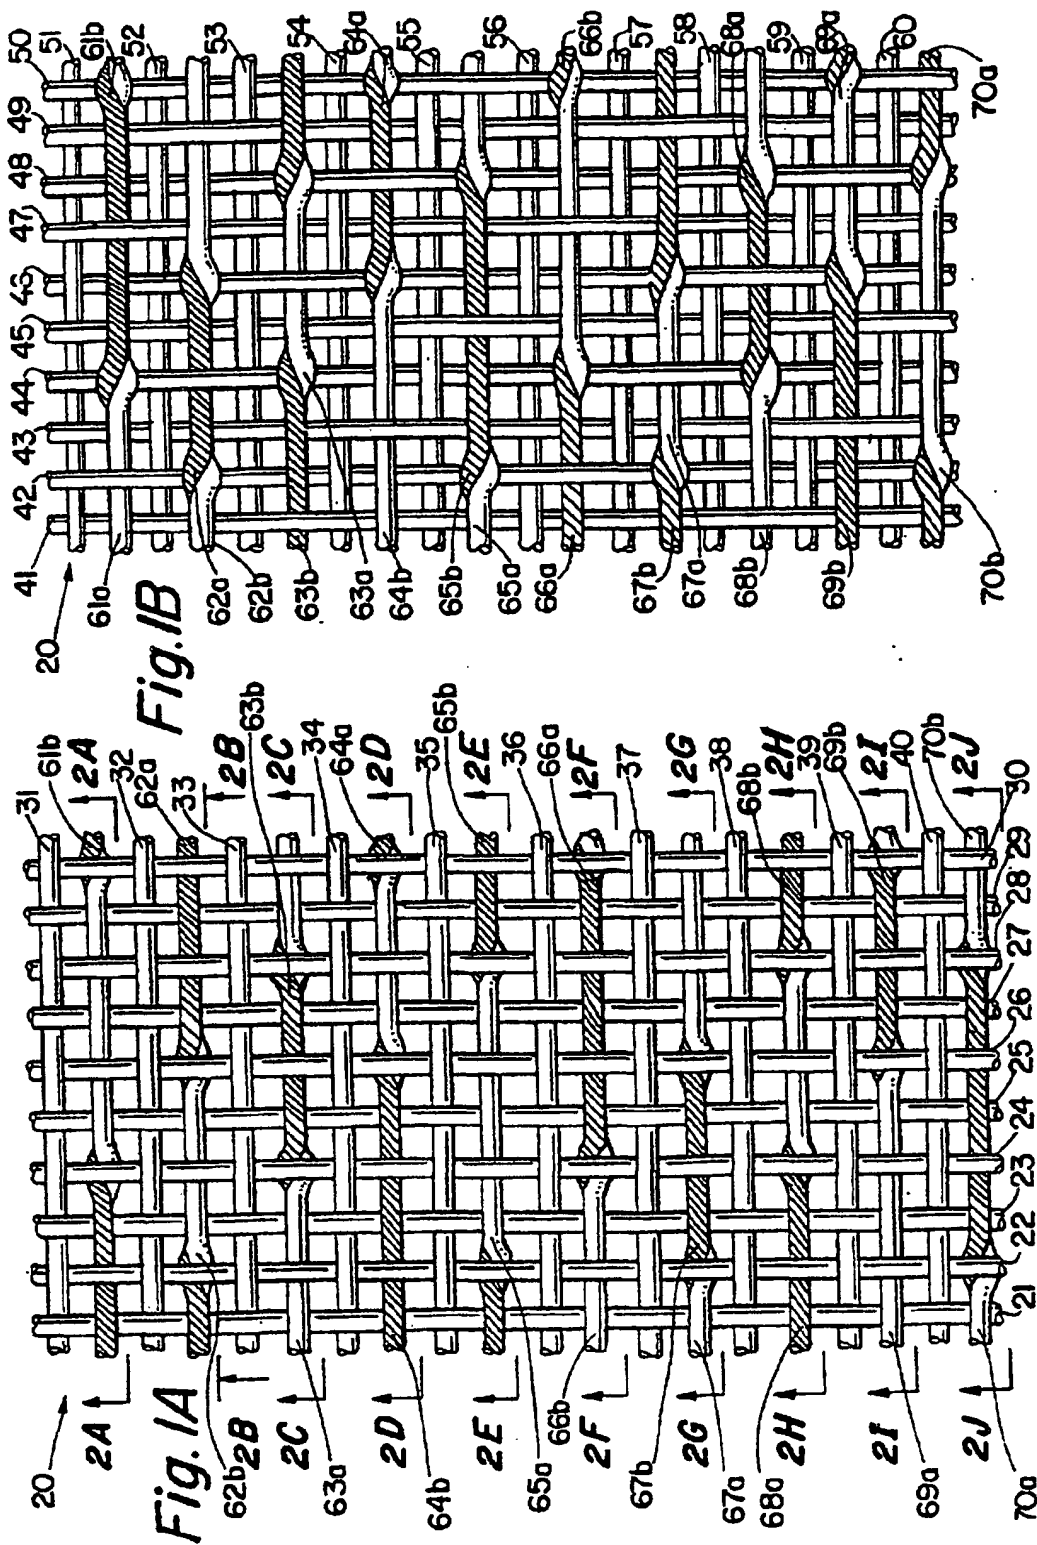 20
Fig.1A
2A
62b
2B
2C
63a
2D
64b
2E
65a
66b
2F
67b
2G
67a
68a
2H
2I
69a
2J
70a
31
61b
2A
32
62a
33
2B
63b
2C
34
64a
2D
35
65b
2E
36
66a
2F
37
2G
38
68b
2H
39
69b
2I
40
70b
2J
21 22 23 24 25 26 27 28 29 30
20
Fig.1B
41 42 43 44 45 46 47 48 49 50
61a
62a
62b
63b
63a
64b
65b
65a
66a
67b
67a
68b
69b
70b
51
61b
52
53
54
64a
55
56
66b
57
58
68a
59
69a
60
70a